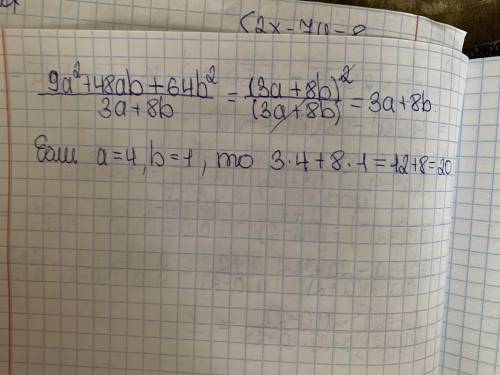 (2x-7)(-8
9a²+48ab+64b² / 3a+8b = (3a+8b)² / (3a+8b) = 3a+8b.
Если a=4, b=1, то 3·4+8·1=12+8=20